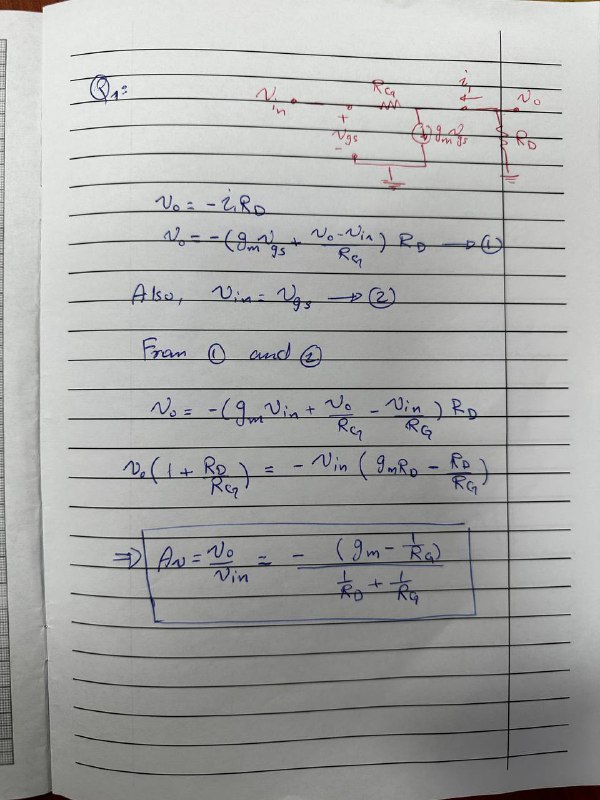 Q1:
Vin RG i1 vo
+ vgs - gmvgs RD
vo = - i1RD
vo = -(gmvgs + (vo-vin)/RG) RD → ①
Also, vin = vgs → ②
From ① and ②
vo = -(gmvin + vo/RG - vin/RG) RD
vo(1 + RD/RG) = - vin (gmRD - RD/RG)
⇒ Av = vo/vin = - (gm - 1/RG) / (1/RD + 1/RG)